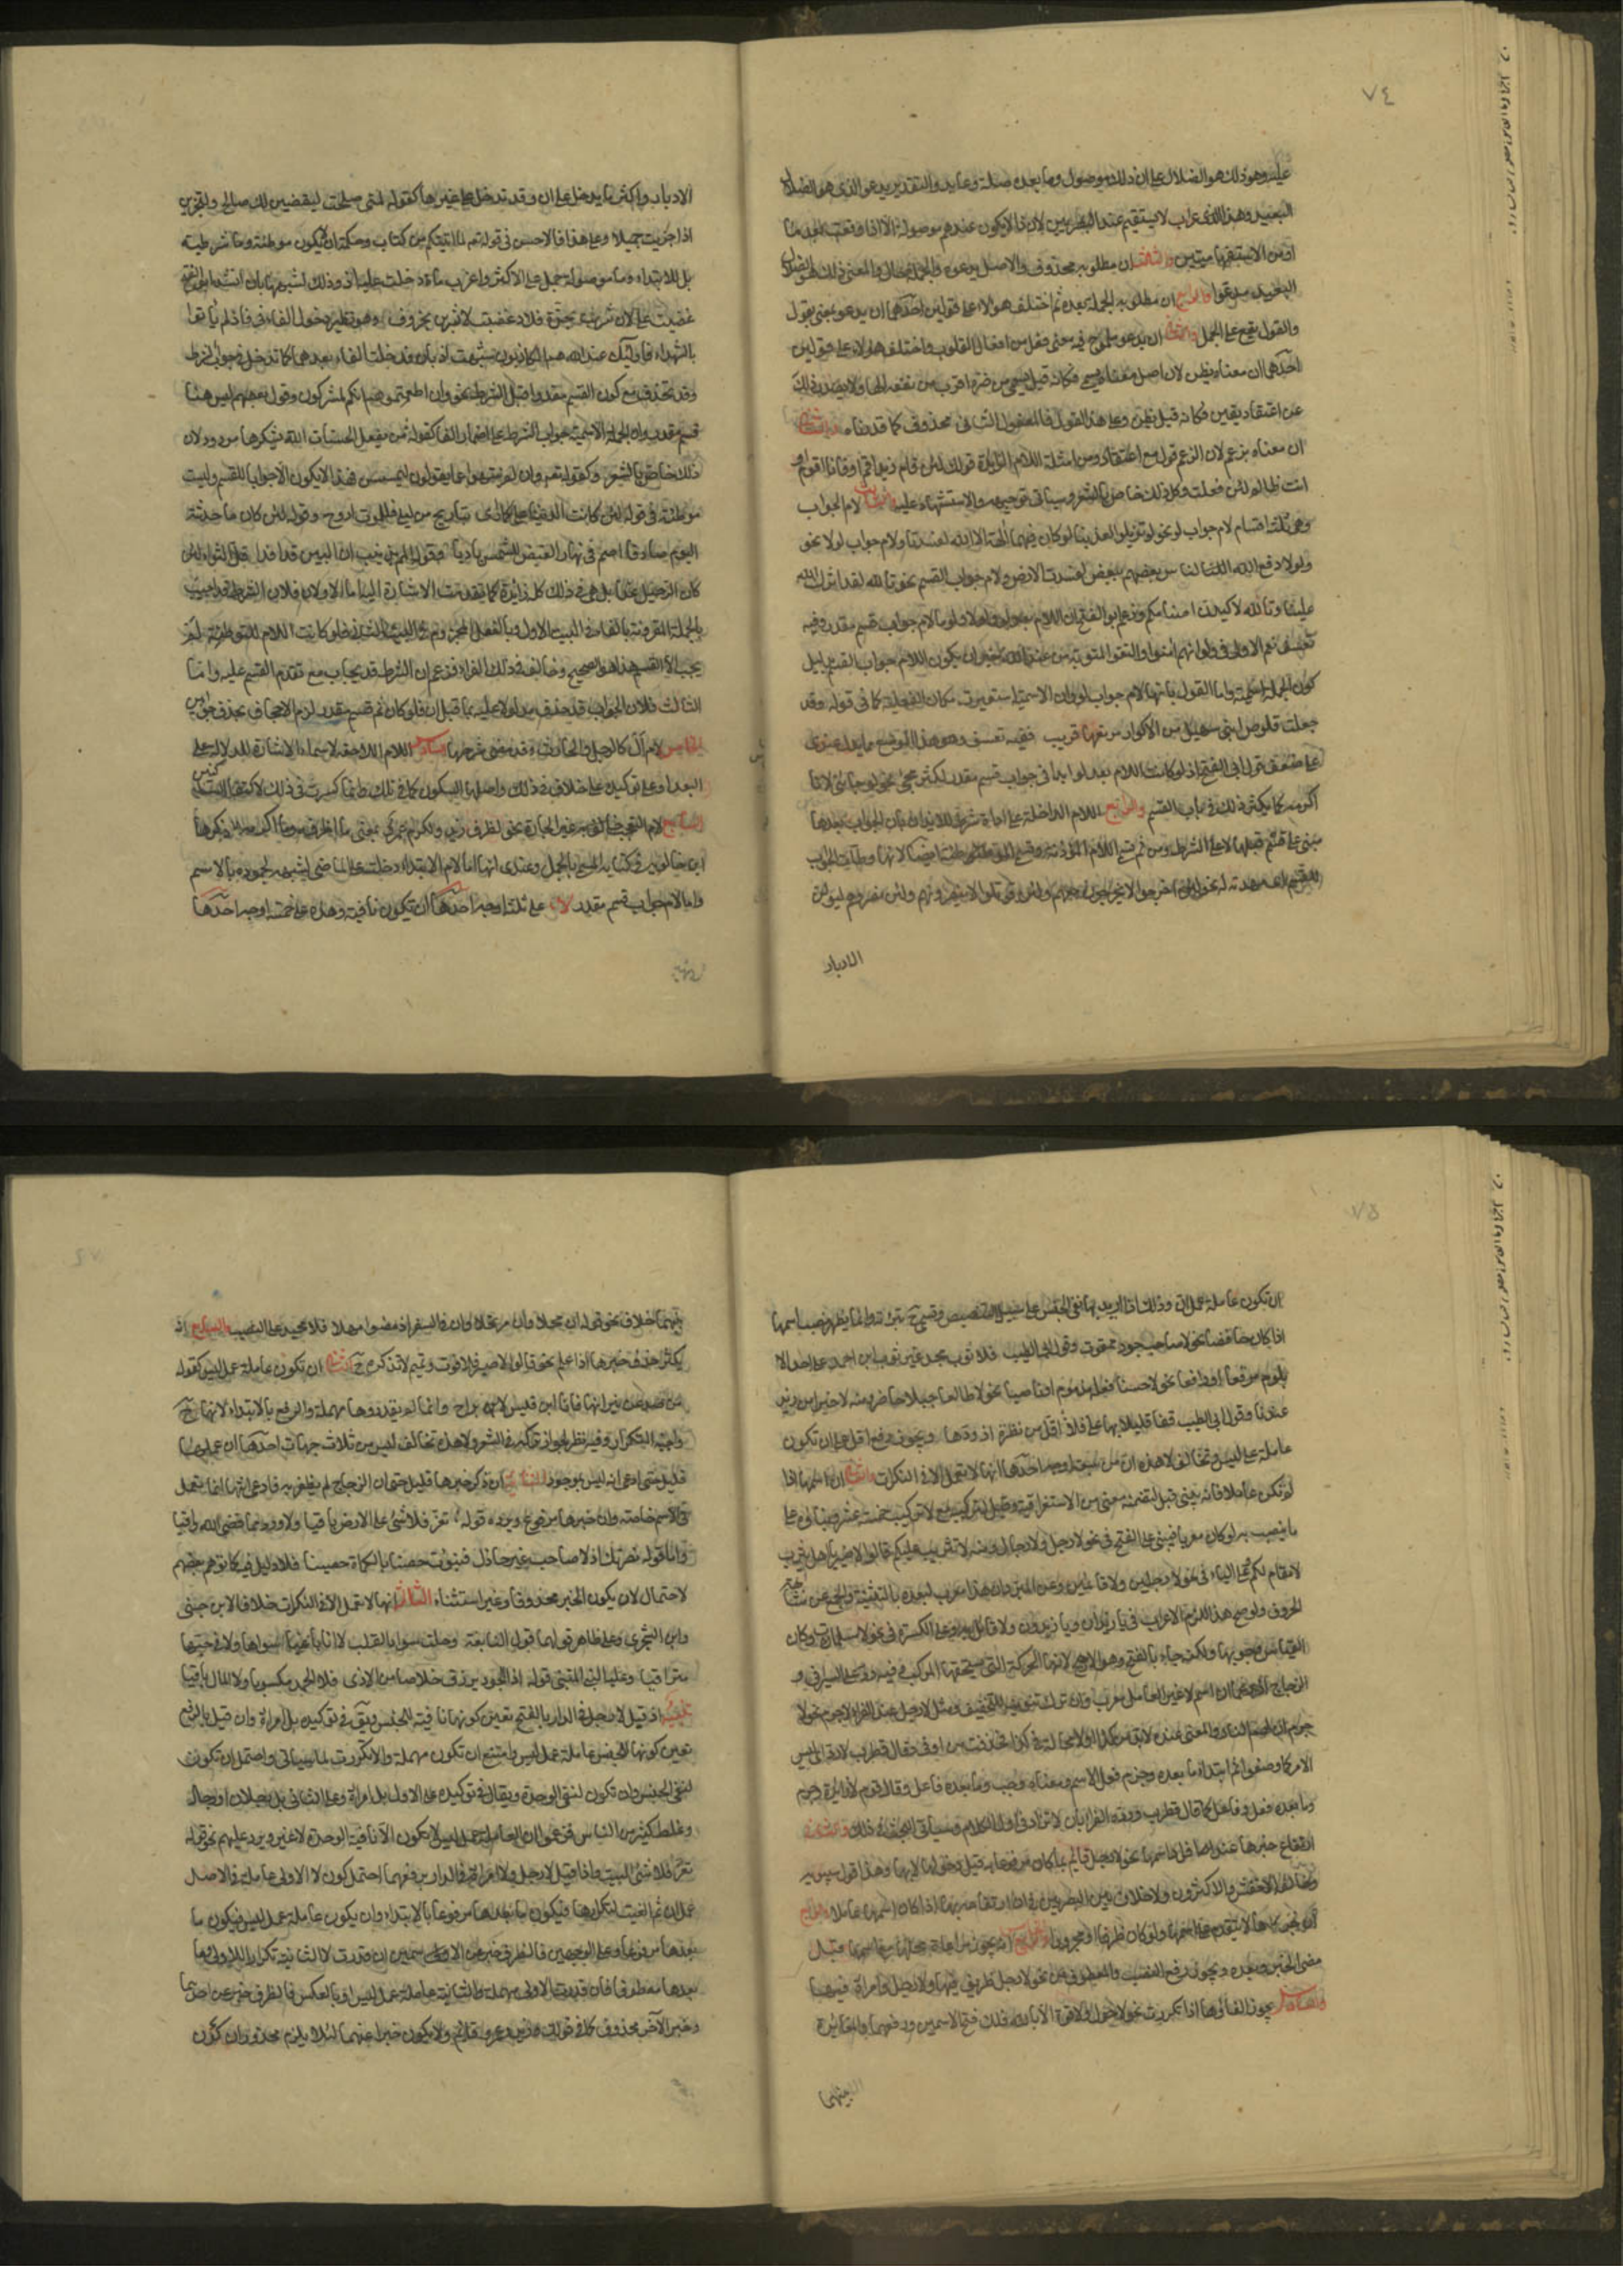 ٧٤
عليه وهو ذلك هو الضلال على ان ذلك موصول وما بعده صلة وعايد والتقدير يدعو الذى هو الضلال
البعيد وهذا الاعراب لا يستقيم عند البصريين لان ذا لا يكون عندهم موصولة الا اذا وقعت بعد ما
او من الاستفهاميتين والثالث ان مطلوبه محذوف والاصل يدعوه والجملة حال والمعنى ذلك هو الضلال
البعيد مدعوا والرابع ان مطلوبه الجملة بعده ثم اختلف هولاء على قولين احدهما ان يدعو بمعنى يقول
والقول يقع على الجمل والثانى ان يدعو ملموح فيه معنى فعل من افعال القلوب واختلف هولاء على قولين
احدهما ان معناه يظن لان اصل معناه يسمى فكانه قيل يسمى من ضره اقرب من نفعه الها ولا يصدر ذلك
عن اعتقاد يقين فكانه قيل يظن وعلى هذا القول فالمفعول الثانى محذوف كما قدمناه والثانى
ان معناه يزعم لان الزعم قول مع اعتقاد ومن امثلة اللام الزايدة قولك لئن قام زيد اقم او فانا اقوم او
انت ظالم لئن فعلت وكل ذلك خاص بالشعر وسياتى توجيهه والاستشهاد عليه الثالث لام الجواب
وهى ثلثة اقسام لام جواب لو نحو لو تزيلوا لعذبنا لو كان فيهما آلهة الا الله لفسدتا ولام جواب لولا نحو
ولولا دفع الله الناس بعضهم ببعض لفسدت الارض ولام جواب القسم نحو تالله لقد اثرك الله
علينا وتالله لاكيدن اصنامكم وزعم ابو الفتح ان اللام بعد لو ولولا ولوما لام جواب قسم مقدر وفيه
تعسف نعم الاولى فى ولو انهم امنوا واتقوا لمثوبة من عند الله خير ان يكون اللام جواب القسم بدليل
كون الجملة اسمية واما القول بانها لام جواب لو وان الاسمية استعيرت مكان الفعلية كما فى قوله وقد
جعلت قلوص ابنى سهيل من الاكوار مرتعها قريب ففيه تعسف وهو هذا الموضع مما يدل عندى
على ضعف قول ابى الفتح اذ لو كانت اللام بعد لو ابدا فى جواب قسم مقدر لكثر مجئ نحو لو جاءنى لانا
اكرمه كما يكثر ذلك فى باب القسم والرابع اللام الداخلة على اداة شرط للايذان بان الجواب بعدها
مبنى على قسم قبلها لا على الشرط ومن ثم تسمى اللام المؤذنة وتسمى الموطئة ايضا لانها وطات الجواب
للقسم اى مهدته له نحو لئن اخرجوا لا يخرجون معهم ولئن قوتلوا لا ينصرونهم ولئن نصروهم ليولن
الادبار
الادبار واكثر ما يدخل على ان وقد تدخل على غيرها كقوله لمتى صلحت ليقضين لك صالح ولتجزين
اذا جزيت جميلا وعلى هذا فالاحسن فى قوله تع لما اتيتكم من كتاب وحكمة ان لا يكون موطئة وما شرطية
بل للابتداء وما موصولة حمل على الاكثر واغرب ما دخلت عليه اذ وذلك لشبهها بان انشد ابو الفتح
غضبت على لان شربت بجزة فلاذ غضبت لاشربن بخروف وهو نظير دخول الفاء فى فاذ لم ياتوا
بالشهداء فاولئك عند الله هم الكاذبون شبهت اذ بان فدخلت الفاء بعدها كما تدخل فى جواب الشرط
وقد تحذف مع كون القسم مقدرا قبل الشرط نحو وان اطعتموهم انكم لمشركون وقول بعضهم ليس هنا
قسم مقدر وان الجملة الاسمية جواب الشرط على اضمار الفا كقوله من يفعل الحسنات الله يشكرها مردود لان
ذلك خاص بالشعر وكقوله تع وان لم ينتهوا عما يقولون ليمسن فهذا لا يكون الا جوابا للقسم وليست
موطئة فى قوله لئن كانت الدنيا على كما ارى تباريح من ليلى فللموت اروح وقوله لئن كان ما حدثته
اليوم صادقا اصم فى نهار القيظ للشمس باديا وقوله المم بزينب ان البين قد افدا قل الثواء لئن
كان الرحيل غدا بل هى فى ذلك كله زايدة كما تقدمت الاشارة اليه اما الاولان فلان الشرط قد اجيب
بالجملة المقرونة بالفاء فى البيت الاول وبالفعل المجزوم فى البيت الثانى فلو كانت اللام للتوطئة لم
يجب الا القسم هذا هو الصحيح وخالف فى ذلك الفراء فزعم ان الشرط قد يجاب مع تقدم القسم عليه واما
الثالث فلان الجواب قد حذف مدلولا عليه بما قبل ان فلو كان ثم قسم مقدر لزم الاجحاف بحذف جوابين
الخامس لام ال كالرجل والحارث وقد مضى شرحها السادس اللام اللاحقة لاسماء الاشارة للدلالة على
البعد او على توكيده على خلاف فى ذلك واصلها السكون كما فى تلك وانما كسرت فى ذلك لالتقاء الساكنين
السابع لام التعجب الغير الجارة نحو لظرف زيد ولكرم عمرو بمعنى ما اظرف زيدا وما اكرم عمرا ذكرها
ابن خالويه فى كتابه المسمى بالجمل وعندى انها اما لام الابتداء دخلت على الماضى لشبهه لجموده بالاسم
واما لام جواب قسم مقدر لا على ثلثة اوجه احدها ان تكون نافية وهذه على خمسة اوجه احدها
٧٥
ان تكون عاملة عمل ان وذلك اذا اريد بها نفى الجنس على سبيل التنصيص وتسمى ح تبرئة وانما يظهر نصب اسمها
اذا كان خافضا نحو لا صاحب جود ممقوت وقول ابى الطيب فلا ثوب مجد غير ثوب ابن احمد على احد الا
بلوم مرقع او رافعا نحو لا حسنا فعله مذموم او ناصبا نحو لا طالعا جبلا حاضر ومنه لا خيرا من زيد
عندنا وقول ابى الطيب قفا قليلا بها على فلا اقل من نظرة ازودها ويجوز رفع اقل على ان تكون
عاملة عمل ليس وتخالف لا هذه ان من سبعة اوجه احدها انها لا تعمل الا فى النكرات والثانى ان اسمها اذا
لم يكن عاملا فانه يبنى قيل لتضمنه معنى من الاستغراقية وقيل لتركيبه مع لا تركيب خمسة عشر وبناؤه على
ما ينصب به لو كان معربا فيبنى على الفتح فى نحو لا رجل ولا رجال ومنه لا تثريب عليكم قالوا لا ضير يا اهل يثرب
لا مقام لكم وعلى الياء فى نحو لا رجلين ولا قائمين وعن المبرد ان هذا معرب لبعده بالتثنية والجمع عن مشابهة
الحروف ولو صح هذا للزم الاعراب فى يا زيدان ويا زيدون ولا قائل به وعلى الكسرة فى نحو لا مسلمات وكان
القياس وجوبها ولكنه جاء بالفتح وهو الارجح لانها الحركة التى يستحقها المركب وفيه رد على السيرافى و
الزجاج اذ زعما ان اسم لا غير العامل معرب وان ترك تنوينه للتخفيف ومثل لا رجل عند الفراء لا جرم نحو لا
جرم ان لهم النار والمعنى عنده لا بد من كذا او لا محالة فى كذا فحذفت من او فى وقال قطرب لا رد اى ليس
الامر كما وصفوا ثم ابتدئ ما بعده وجرم فعل لا اسم ومعناه وجب وما بعده فاعل وقال قوم لا زايدة وجرم
وما بعده فعل وفاعل كما قال قطرب ورده الفراء بان لا تزاد فى اول الكلام وسياتى البحث فى ذلك والثالث
ارتفاع خبرها عند افراد اسمها نحو لا رجل قائم بما كان مرفوعا به قبل دخولها لا بها وهذا قول سيبويه
وخالفه الاخفش والاكثرون ولا خلاف بين البصريين فى ان ارتفاعه بها اذا كان اسمها عاملا والرابع
ان خبرها لا يتقدم على اسمها ولو كان ظرفا او مجرورا والخامس انه يجوز مراعاة محلها مع اسمها قبل
مضى الخبر وبعده ويجوز رفع النعت والمعطوف فى نحو لا رجل ظريف فيها ولا رجل وامراة فيها
والسادس يجوز الغاؤها اذا تكررت نحو لا حول ولا قوة الا بالله فلك فتح الاسمين ورفعهما والمغايرة
بينهما
بينهما خلاف نحو قوله ان محلا وان مرتحلا وان فى السفر اذ مضوا مهلا فلا محيد عن النصب والسابع انه
يكثر حذف خبرها اذا علم نحو قالوا لا ضير فلا فوت وتميم لا تذكره ح الثانى ان تكون عاملة عمل ليس كقوله
من صد عن نيرانها فانا ابن قيس لا براح وانما لم يقدروها مهملة والرفع بالابتداء لانها ح
واجبة التكرار وفيه نظر لجواز تركه فى الشعر ولا هذه تخالف ليس من ثلاث جهات احدها ان عملها
قليل حتى ادعى انه ليس بموجود الثانية ان ذكر خبرها قليل حتى ان الزجاج لم يظفر به فادعى انها انما تعمل
فى الاسم خاصة وان خبرها مرفوع ويرده قوله تعز فلا شئ على الارض باقيا ولا وزر مما قضى الله واقيا
واما قوله نصرتك اذ لا صاحب غير خاذل فبوئت حصنا بالكماة حصينا فلا دليل فيه كما توهم بعضهم
لاحتمال ان يكون الخبر محذوفا وغير استثناء الثالث انها لا تعمل الا فى النكرات خلافا لابن جنى
وابن الشجرى وعلى ظاهر قولهما قول النابغة وحلت سواد القلب لا انا باغيا سواها ولا فى حبها
متراخيا وعليه بنى المتنبى قوله اذا الجود لم يرزق خلاصا من الاذى فلا الحمد مكسوبا ولا المال باقيا
تنبيه اذ قيل لا رجل فى الدار بالفتح تعين كونها نافية للجنس ويق فى توكيده بل امراة وان قيل بالرفع
تعين كونها عاملة عمل ليس وامتنع ان تكون مهملة والا تكررت لما سياتى واحتمل ان تكون
لنفى الجنس وان تكون لنفى الوحدة ويقال فى توكيده على الاول بل امراة وعلى الثانى بل رجلان او رجال
وغلط كثير من الناس فزعموا ان العاملة عمل ليس لا يكون الا نافية الوحدة لا غير ويرد عليهم نحو قوله
تعز فلا شئ البيت واذا قيل لا رجل ولا امراة فى الدار برفعهما احتمل كون لا الاولى عاملة فى الاصل
عمل ان ثم الغيت لتكرارها فيكون ما بعدها مرفوعا بالابتداء وان يكون عاملة عمل ليس فيكون ما
بعدها مرفوعا بها وعلى الوجهين فالظرف خبر عن الاسمين ان قدرت لا الثانية تكرارا للاولى وما
بعدها معطوفا فان قدرت الاولى مهملة والثانية عاملة عمل ليس او بالعكس فالظرف خبر عن احدهما
وخبر الآخر محذوف كما فى قولك زيد وعمرو قائم ولا يكون خبرا عنهما لئلا يلزم محذوران كون